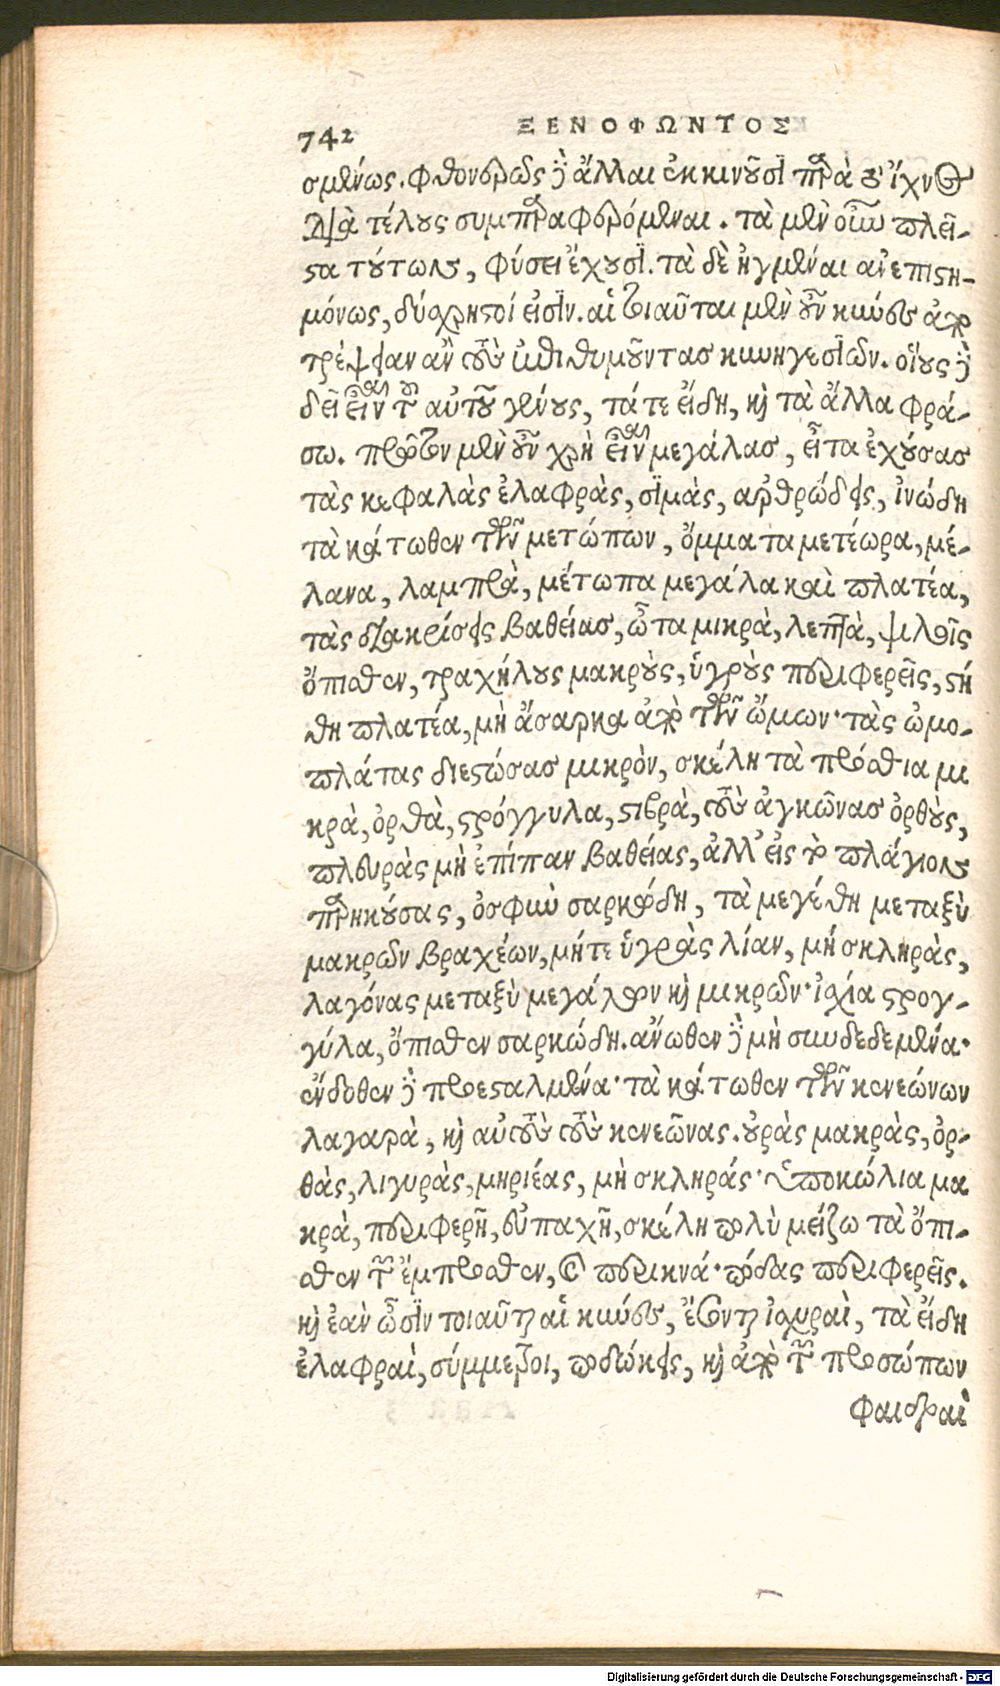 742 ΞΕΝΟΦΩΝΤΟΣ
σμένως. φθονερῶς δὲ ἄλλαι ἐκκινοῦσι παρὰ τὸ ἴχνος
διὰ τέλους συμπαραφερόμεναι. τὰ μὲν οὖν πλεῖ-
στα τούτων, φύσει ἔχουσι. τὰ δὲ ἠγμέναι ἀνεπιστη-
μόνως, δύσχρηστοί εἰσιν. αἱ τοιαῦται μὲν οὖν κύνες ἀπο
τρέψειαν ἂν τοὺς ἐπιθυμοῦντας κυνηγεσίων. οἵους δὲ
δεῖ εἶναι τοῦ αὐτοῦ γένους, τά τε εἴδη, καὶ τὰ ἄλλα φρά-
σω. πρῶτον μὲν οὖν χρὴ εἶναι μεγάλας, εἶτα ἐχούσας
τὰς κεφαλὰς ἐλαφρὰς, σιμὰς, ἀρθρώδεις, ἰνώδη
τὰ κάτωθεν τῶν μετώπων, ὄμματα μετέωρα, μέ-
λανα, λαμπρὰ, μέτωπα μεγάλα καὶ πλατέα,
τὰς διακρίσεις βαθείας, ὦτα μικρὰ, λεπτὰ, ψιλοῖς
ὄπισθεν, τραχήλους μακροὺς, ὑγροὺς περιφερεῖς, στή
θη πλατέα, μὴ ἄσαρκα ἀπὸ τῶν ὤμων· τὰς ὠμο-
πλάτας διεστώσας μικρὸν, σκέλη τὰ πρόσθια μι
κρὰ, ὀρθὰ, στρόγγυλα, στιφρὰ, τοὺς ἀγκῶνας ὀρθοὺς,
πλευρὰς μὴ ἐπίπαν βαθείας, ἀλλ' εἰς τὸ πλάγιον
παρηκούσας, ὀσφὺν σαρκώδη, τὰ μεγέθη μεταξὺ
μακρῶν βραχέων, μήτε ὑγρὰς λίαν, μὴ σκληρὰς,
λαγόνας μεταξὺ μεγάλων καὶ μικρῶν· ἰσχία στρογ-
γύλα, ὄπισθεν σαρκώδη. ἄνωθεν δὲ μὴ συνδεδεμένα·
ἔνδοθεν δὲ προεσταλμένα· τὰ κάτωθεν τῶν κενεώνων
λαγαρὰ, καὶ αὐτοὺς τοὺς κενεῶνας. οὐρὰς μακρὰς, ὀρ-
θὰς, λιγυρὰς, μηριέας, μὴ σκληράς· ὑποκώλια μα
κρὰ, περιφερῆ, εὐπαχῆ, σκέλη πολὺ μείζω τὰ ὄπι-
σθεν τῶν ἔμπροσθεν, καὶ περικνά· πόδας περιφερεῖς.
καὶ ἐὰν ὦσιν τοιαῦται αἱ κύνες, ἔσονται ἰσχυραὶ, τὰ εἴδη
ἐλαφραὶ, σύμμετροι, ποδώκεις, καὶ ἀπὸ τῶν προσώπων
φαιδραὶ
Digitalisierung gefördert durch die Deutsche Forschungsgemeinschaft - DFG